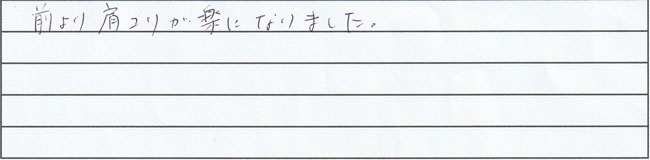 前より肩コリが楽になりました。